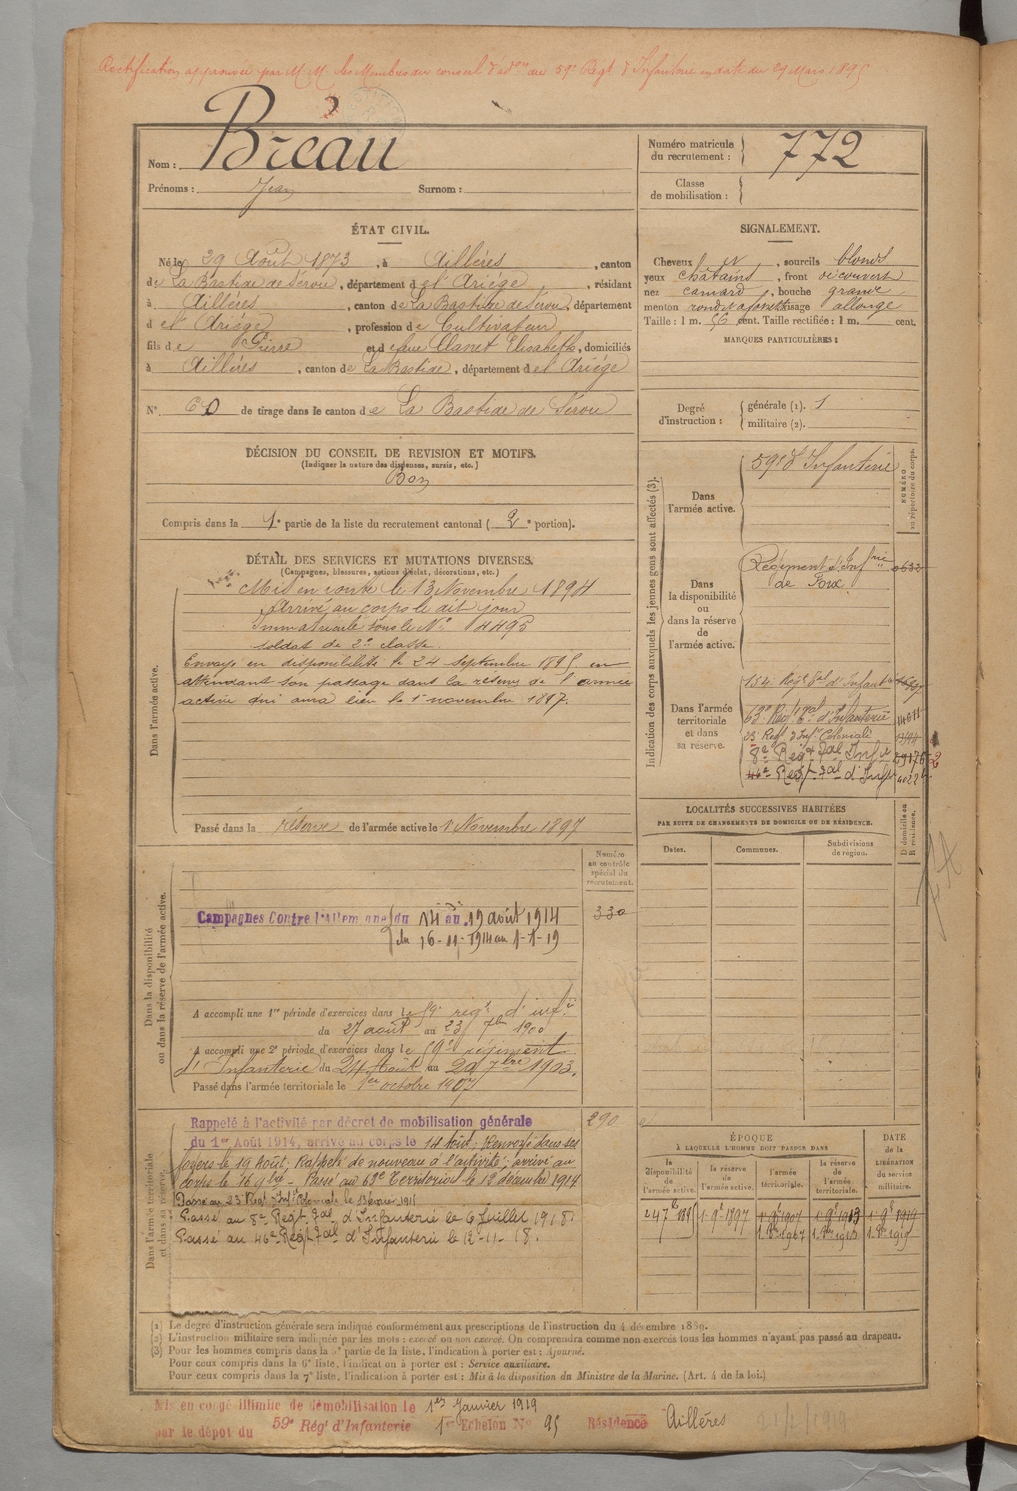 Rectification approuvée par M.M. les Membres du conseil d'adon du 59e Régt d'Infanterie en date du 29 Mars 1895
Nom : Bréau
Prénoms : Jean Surnom :
Numéro matricule du recrutement : 772
Classe de mobilisation :
ÉTAT CIVIL.
Né le 29 Août 1873, à Aillères, canton
de La Bastide de Sérou, département de l'Ariége, résidant
à Aillères, canton de La Bastide de Sérou, département
d el'Ariége, profession de Cultivateur
fils de Pierre et de feue Clanet Elisabeth, domiciliés
à Aillères, canton de La Bastide, département de l'Ariége
N° 60 de tirage dans le canton de La Bastide de Sérou
SIGNALEMENT.
Cheveux, sourcils blonds
yeux chatains, front découvert
nez camard, bouche grande
menton rond visage allongé
Taille : 1 m. 56 cent. Taille rectifiée : 1 m. cent.
MARQUES PARTICULIÈRES :
Degré d'instruction :
générale (1). 1
militaire (2).
DÉCISION DU CONSEIL DE REVISION ET MOTIFS.
(Indiquer la nature des dispenses, sursis, etc.)
Bon
Compris dans la 1e partie de la liste du recrutement cantonal (2e portion).
DÉTAIL DES SERVICES ET MUTATIONS DIVERSES.
(Campagnes, blessures, actions d'éclat, décorations, etc.)
Dans l'armée active.
Mis en route le 13 Novembre 1894
Arrivé au corps le dit jour
Immatriculé sous le No 4495
soldat de 2e classe.
Envoyé en disponibilité le 24 septembre 1895 en
attendant son passage dans la réserve de l'armée
active qui aura lieu le 1er novembre 1897.
Passé dans la réserve de l'armée active le 1er Novembre 1897
Indication des corps auxquels les jeunes gens sont affectés (3).
NUMÉRO au répertoire du corps.
Dans l'armée active.
59e d'Infanterie
Dans la disponibilité ou dans la réserve de l'armée active.
Régiment d'Infrie de Foix
Dans l'armée territoriale et dans sa réserve.
134e Régt tal d'Infant
63e Régt tal d'Infanterie
23 Régt d'Infie Coloniale
8e Régt Tal Infie
46e Régt Tal d'Infie
LOCALITÉS SUCCESSIVES HABITÉES
PAR SUITE DE CHANGEMENTS DE DOMICILE OU DE RÉSIDENCE.
Dates. Communes. Subdivisions de région. D domicile ou R résidence.
Numéro au contrôle spécial du recrutement.
330
Dans la disponibilité ou dans la réserve de l'armée active.
Campagnes Contre l'Allemagne du 14 au 19 août 1914
du 16-11-1914 au 1-1-19
A accompli une 1re période d'exercices dans le 59e régt d'infie
du 27 août au 23 7bre 1900
A accompli une 2e période d'exercices dans le 59e régiment
d'Infanterie du 24 Août au 20 7bre 1903.
Passé dans l'armée territoriale le 1er octobre 1907
Dans l'armée territoriale et dans sa réserve.
290
Rappelé à l'activité par décret de mobilisation générale
du 1er Août 1914, arrivé au corps le 14 Août. Renvoyé dans ses
foyers le 19 Août. Rappelé de nouveau à l'activité; arrivé au
corps le 16 9bre - Passé au 63e Territorial le 12 décembre 1914
Passé au 23e Régt d'Infie Coloniale le
Passé au 8e Régt Tal d'Infanterie le 6 Juillet 1918.
Passé au 46e Régt Tal d'Infanterie le 12-11-18.
ÉPOQUE
À LAQUELLE L'HOMME DOIT PASSER DANS
la disponibilité de l'armée active. la réserve de l'armée active. l'armée territoriale. la réserve de l'armée territoriale.
DATE de la LIBÉRATION du service militaire.
24 7bre 1895 1er 9bre 1897
(1) Le degré d'instruction générale sera indiqué conformément aux prescriptions de l'instruction du 4 décembre 1889.
(2) L'instruction militaire sera indiquée par les mots : exercé ou non exercé. On comprendra comme non exercés tous les hommes n'ayant pas passé au drapeau.
(3) Pour les hommes compris dans la 5e partie de la liste, l'indication à porter est : Ajourné.
Pour ceux compris dans la 6e liste, l'indication à porter est : Service auxiliaire.
Pour ceux compris dans la 7e liste, l'indication à porter est : Mis à la disposition du Ministre de la Marine. (Art. 4 de la loi.)
Mis en congé illimité de démobilisation le 1er Janvier 1919
par le dépôt du 59e Rég' d'Infanterie 1er Echelon No 95 Résidence Aillères 21/2/1919